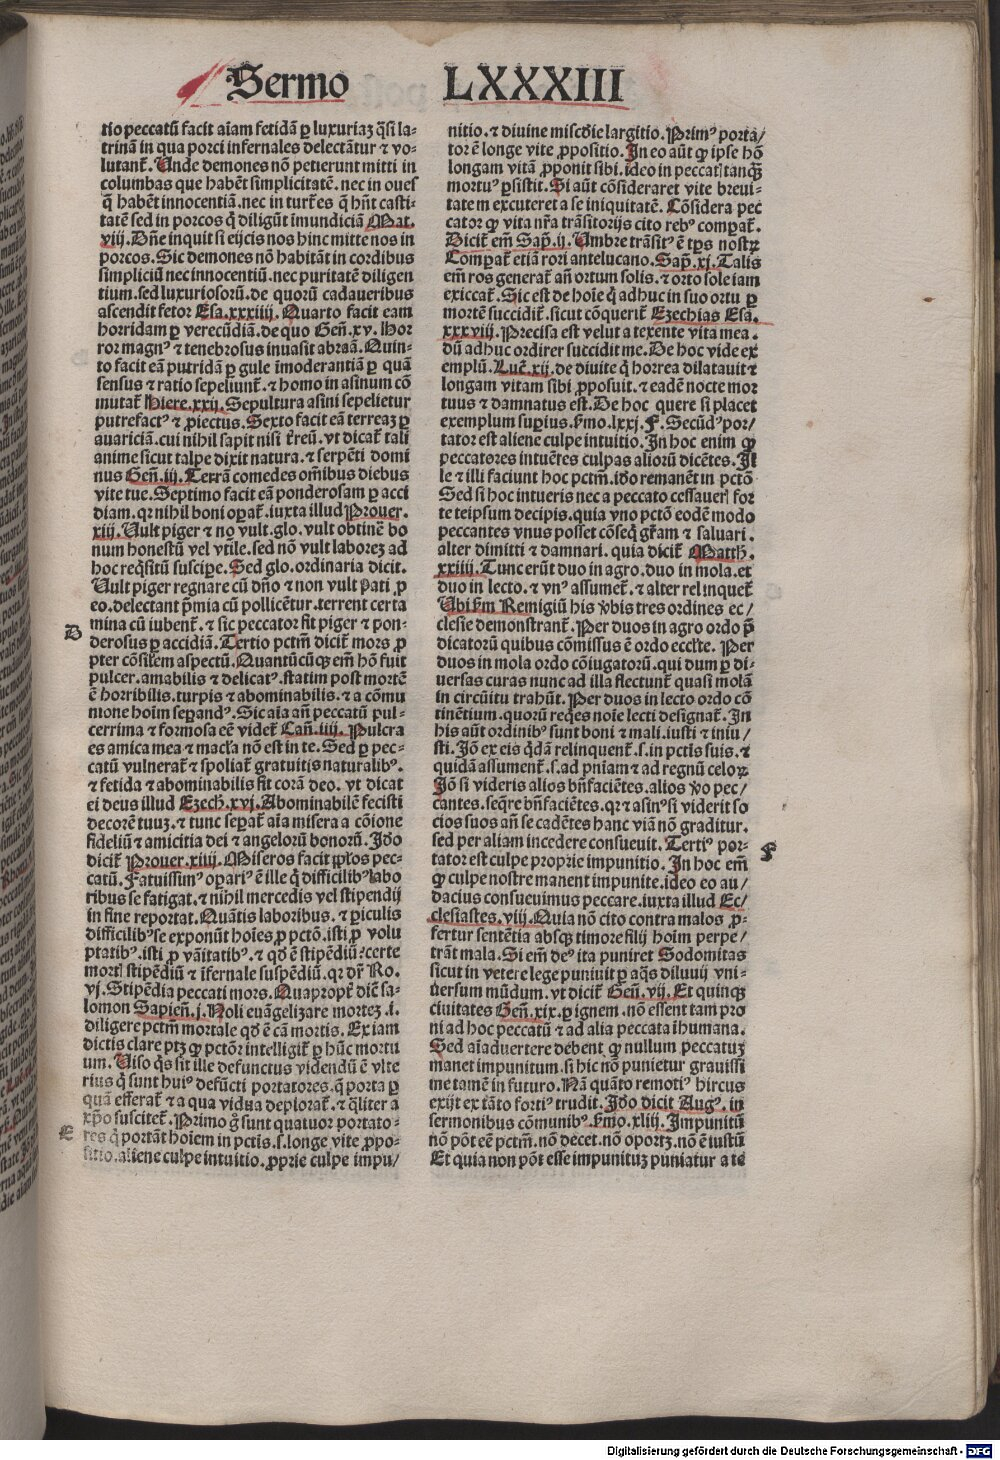 Sermo LXXXIII
tio peccatū facit aīam fetidā ꝑ luxuriaȝ q̄si la-
trinā in qua porci infernales delectātur ⁊ vo-
lutant̃. Unde demones nō petierunt mitti in
columbas que habēt simplicitatē. nec in oues
q̄ habēt innocentiā. nec in turt̃es q̄ hn̄t casti-
tatē sed in porcos q̄ diligūt īmundiciā Mat.
viij. Dn̄e inquit si eijcis nos hinc mitte nos in
porcos. Sic demones nō habitāt in cordibus
simpliciū nec innocentiū. nec puritatē diligen
tium. sed luxuriosorū. de quorū cadaueribus
ascendit fetor Esa. xxxiiij. Quarto facit eam
horridam ꝑ verecūdiā. de quo Gen̄. xv. Hor
ror magn⁹ ⁊ tenebrosus inuasit abraā. Quin-
to facit eā putridā ꝑ gule īmoderantiā ꝑ quā
sensus ⁊ ratio sepeliunt̃. ⁊ homo in asinum cō
mutat̃ Hiere. xxij. Sepultura asini sepelietur
putrefact⁹ ⁊ ꝓiectus. Sexto facit eā terreaȝ ꝑ
auariciā. cui nihil sapit nisi t̃reū. vt dicat̃ tali
anime sicut talpe dixit natura. ⁊ serpēti domi
nus Gen̄. iij. Terrā comedes om̄ibus diebus
vite tue. Septimo facit eā ponderosam ꝑ acci
diam. qr nihil boni oꝑat̃. iuxta illud Prouer.
xiij. Vult piger ⁊ no vult. glo. vult obtinē bo
num honestū vel vtile. sed nō vult laboreȝ ad
hoc reqsitū suscipe. Sed glo. ordinaria dicit.
Vult piger regnare cū dn̄o ⁊ non vult pati ꝓ
eo. delectant p̄mia cū pollicētur. terrent certa
mina cū iubent̃. ⁊ sic peccator fit piger ⁊ pon-
D
derosus ꝑ accidiā. Tertio pctm̄ dicit̃ mors ꝓ
pter cōsil̄em aspectū. Quantūcūqꝫ em̄ hō fuit
pulcer. amabilis ⁊ delicat⁹. statim post mortē
ē horribilis. turpis ⁊ abominabilis. ⁊ a cōmu
nione hoīm seꝑand⁹. Sic aīa an̄ peccatū pul-
cerrima ⁊ formosa eē videt̃ Can̄. iiij. Pulcra
es amica mea ⁊ macl̄a nō est in te. Sed ꝑ pec-
catū vulnerat̃ ⁊ spoliat̃ gratuitis naturalib⁹.
⁊ fetida ⁊ abominabilis fit corā deo. vt dicat
ei deus illud Ezech. xvj. Abominabilē fecisti
decorē tuuȝ. ⁊ tunc seꝑat̃ aīa misera a cōione
fideliū ⁊ amicitia dei ⁊ angelorū bonorū. Ido
dicit̃ Prouer. xiiij. Miseros facit ꝓplos pec-
catū. Fatuissim⁹ oꝑari⁹ ē ille q̄ difficilib⁹ labo
ribus se fatigat. ⁊ nihil mercedis vel stipendij
in fine reportat. Quātis laboribus. ⁊ ꝑiculis
difficilib⁹ se exponūt hoīes ꝓ pctō. isti ꝓ volu
ptatib⁹. isti ꝓ vāitatib⁹. ⁊ qd ē stipēdiū? certe
mors stipēdiū ⁊ īfernale suspēdiū. qr dr̄ Ro.
vj. Stipēdia peccati mors. Quapropt̃ dic̄ sa-
lomon Sapien̄. j. Noli euāgelizare morteȝ. i.
diligere pctm̄ mortale qd ē cā mortis. Ex iam
dictis clare ptȝ ꝙ pctōr intelligit̃ ꝑ hūc mortu
um. Viso q̄s sit ille defunctus videndū ē vlte
rius q̄ sunt hui⁹ defūcti portatores. q̄ porta ꝑ
quā efferat̃ ⁊ a qua vidua deplorat̃. ⁊ q̄liter a
xp̄o suscitet̃. Primo g̊ sunt quatuor portato-
E
res q̄ portāt hoīem in pctis. s. longe vite ꝓpo-
sitio. aliene culpe intuitio. ꝓprie culpe impu/
nitio. ⁊ diuine misc̄die largitio. Prim⁹ porta/
tor ē longe vite ꝓpositio. In eo aūt ꝙ ipse hō
longam vitā ꝓponit sibi. ideo in peccatis tanqꝫ
mortu⁹ ꝑsistit. Si aūt cōsideraret vite breui-
tatem excuteret a se iniquitatē. Cōsidera pec
cator ꝙ vita nr̄a trāsitorijs cito reb⁹ compat̃.
Dicit̃ em̄ Sap̄. ij. Umbre trāsit⁹ ē tp̄s nostrꝫ
Compat̃ etiā rori antelucano. Sap̄. xj. Talis
em̄ ros generat̃ an̄ ortum solis. ⁊ orto sole iam
exiccat̃. Sic est de hoīe q̄ adhuc in suo ortu ꝑ
mortē succidit̃. sicut cōquerit̃ Ezechias Esa.
xxxviij. Precisa est velut a texente vita mea.
dū adhuc ordirer succidit me. De hoc vide ex
emplū. Luc̄. xij. de diuite q̄ horrea dilatauit ⁊
longam vitam sibi ꝓposuit. ⁊ eadē nocte mor
tuus ⁊ damnatus est. De hoc quere si placet
exemplum suꝑius. s̄mo. lxxj. F. Secūd⁹ por/
tator est aliene culpe intuitio. In hoc enim ꝙ
peccatores intuētes culpas aliorū dicētes. Il
le ⁊ illi faciunt hoc pctm̄. ido remanēt in pctō
Sed si hoc intueris nec a peccato cessaueris for
te teipsum decipis. quia vno pctō eodē modo
peccantes vnus posset cōseq̄ gr̄am ⁊ saluari.
alter dimitti ⁊ damnari. quia dicit̃ Matth.
xxiiij. Tunc erūt duo in agro. duo in mola. et
duo in lecto. ⁊ vn⁹ assumet̃. ⁊ alter relinquet̃
Ubi s̄m Remigiū his v̄bis tres ordines ec/
clesie demonstrant̃. Per duos in agro ordo p̄
dicatorū quibus cōmissus ē ordo eccl̄te. Per
duos in mola ordo cōiugatorū. qui dum ꝑ di-
uersas curas nunc ad illa flectunt̃ quasi molā
in circūitu trahūt. Per duos in lecto ordo cō
tinētium. quorū reqes noīe lecti designat̃. In
his aūt ordinib⁹ sunt boni ⁊ mali. iusti ⁊ iniu/
sti. Iō ex eis q̄dā relinquent̃. s. in pctis suis. ⁊
quidā assument̃. s. ad pn̄iam ⁊ ad regnū celoꝝ
Iō si videris alios bn̄faciētes. alios v̄o pec/
cantes. seq̄re bn̄faciētes. qr ⁊ asin⁹ si viderit so
cios suos an̄ se cadētes hanc viā nō graditur.
sed per aliam incedere consueuit. Terti⁹ por-
F
tator est culpe proprie impunitio. In hoc em̄
ꝙ culpe nostre manent impunite. ideo eo au/
dacius consueuimus peccare. iuxta illud Ec/
clesiastes. viij. Quia nō cito contra malos ꝓ-
fertur sentētia absqꝫ timore filij hoīm perpe/
trāt mala. Si em̄ de⁹ ita puniret Sodomitas
sicut in vetere lege puniuit ꝑ aq̄s diluuij vni-
uersum mūdum. vt dicit̃ Gen̄. vij. Et quinqꝫ
ciuitates Gen̄. xix. ꝑ ignem. nō essent tam pro
ni ad hoc peccatū ⁊ ad alia peccata ihumana.
Sed aīaduertere debent ꝙ nullum peccatuȝ
manet impunitum. si hic nō punietur grauissi
me tamē in futuro. Nā quāto remoti⁹ hircus
exijt ex tāto forti⁹ trudit. Ido dicit Aug⁹. in
sermonibus cōmunib⁹ s̄mo. xliij. Impunitū
nō pōt eē pctm̄. nō decet. nō oportȝ. nō ē iustū
Et quia non pōt esse impunituȝ puniatur a te
Digitalisierung gefördert durch die Deutsche Forschungsgemeinschaft - DFG